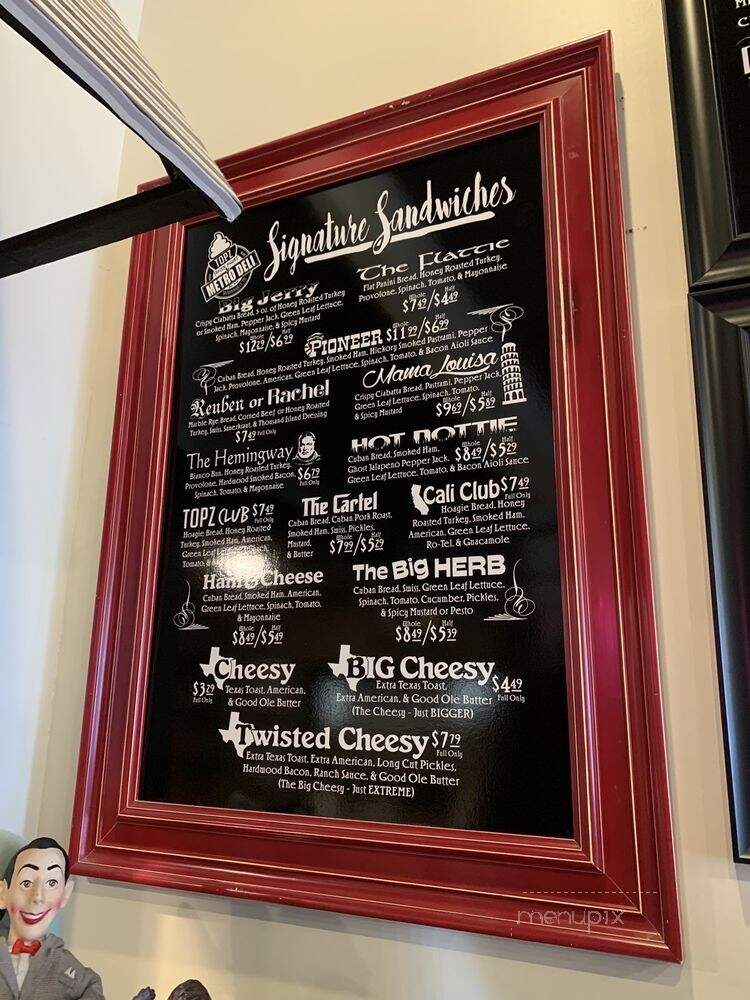 Signature Sandwiches
TOPZ
METRO DELI
Big Jerry
Crispy Ciabatta Bread, 5 oz. of Honey Roasted Turkey
or Smoked Ham, Pepper Jack, Green Leaf Lettuce,
Spinach, Mayonnaise, & Spicy Mustard
Whole Half
$12.29/$6.99
The Flattie
Flat Panini Bread, Honey Roasted Turkey,
Provolone, Spinach, Tomato, & Mayonnaise
Whole Half
$7.49/$4.49
PIONEER Whole Half
$11.99/$6.99
Cuban Bread, Honey Roasted Turkey, Smoked Ham, Hickory Smoked Pastrami, Pepper
Jack, Provolone, American, Green Leaf Lettuce, Spinach, Tomato, & Bacon Aioli Sauce
Reuben or Rachel
Marble Rye Bread, Corned Beef or Honey Roasted
Turkey, Swiss, Sauerkraut, & Thousand Island Dressing
$7.49 Full Only
Mama Louisa
Crispy Ciabatta Bread, Pastrami, Pepper Jack,
Green Leaf Lettuce, Spinach, Tomato,
& Spicy Mustard
Whole Half
$9.69/$5.89
The Hemingway
Bianco Bun, Honey Roasted Turkey,
Provolone, Hardwood Smoked Bacon,
Spinach, Tomato, & Mayonnaise
$6.79
Full Only
HOT HOTTIE
Cuban Bread, Smoked Ham,
Ghost Jalapeno Pepper Jack,
Green Leaf Lettuce, Tomato, & Bacon Aioli Sauce
Whole Half
$8.49/$5.29
TOPZ CLUB $7.49
Full Only
Hoagie Bread, Honey Roasted
Turkey, Smoked Ham, American,
Green Leaf
Tomato, &
The Cartel
Cuban Bread, Cuban Pork Roast,
Smoked Ham, Swiss, Pickles,
Mustard,
& Butter
Whole Half
$7.99/$5.29
Cali Club $7.49
Full Only
Hoagie Bread, Honey
Roasted Turkey, Smoked Ham,
American, Green Leaf Lettuce,
Ro-Tel, & Guacamole
Ham & Cheese
Cuban Bread, Smoked Ham, American,
Green Leaf Lettuce, Spinach, Tomato,
& Mayonnaise
Whole Half
$8.49/$5.49
The Big HERB
Cuban Bread, Swiss, Green Leaf Lettuce,
Spinach, Tomato, Cucumber, Pickles,
& Spicy Mustard or Pesto
Whole Half
$8.49/$5.39
Cheesy
$3.29
Full Only
Texas Toast, American,
& Good Ole Butter
BIG Cheesy
$4.49
Full Only
Extra Texas Toast,
Extra American, & Good Ole Butter
(The Cheesy - Just BIGGER)
Twisted Cheesy $7.79
Full Only
Extra Texas Toast, Extra American, Long Cut Pickles,
Hardwood Bacon, Ranch Sauce, & Good Ole Butter
(The Big Cheesy - Just EXTREME)
menupix